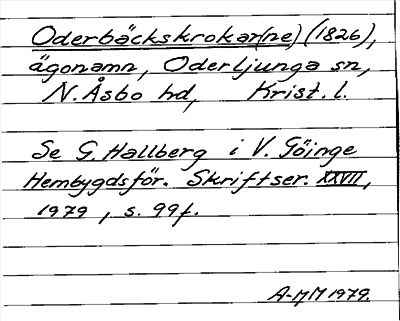 Oderbäckskrokar(ne) (1826),
ägonamn, Oderljunga sn,
N. Åsbo hd, Krist. l.
Se G. Hallberg i V. Göinge
Hembygdsför. Skriftser. XXVII,
1979, s. 99f.
A-MM 1979.